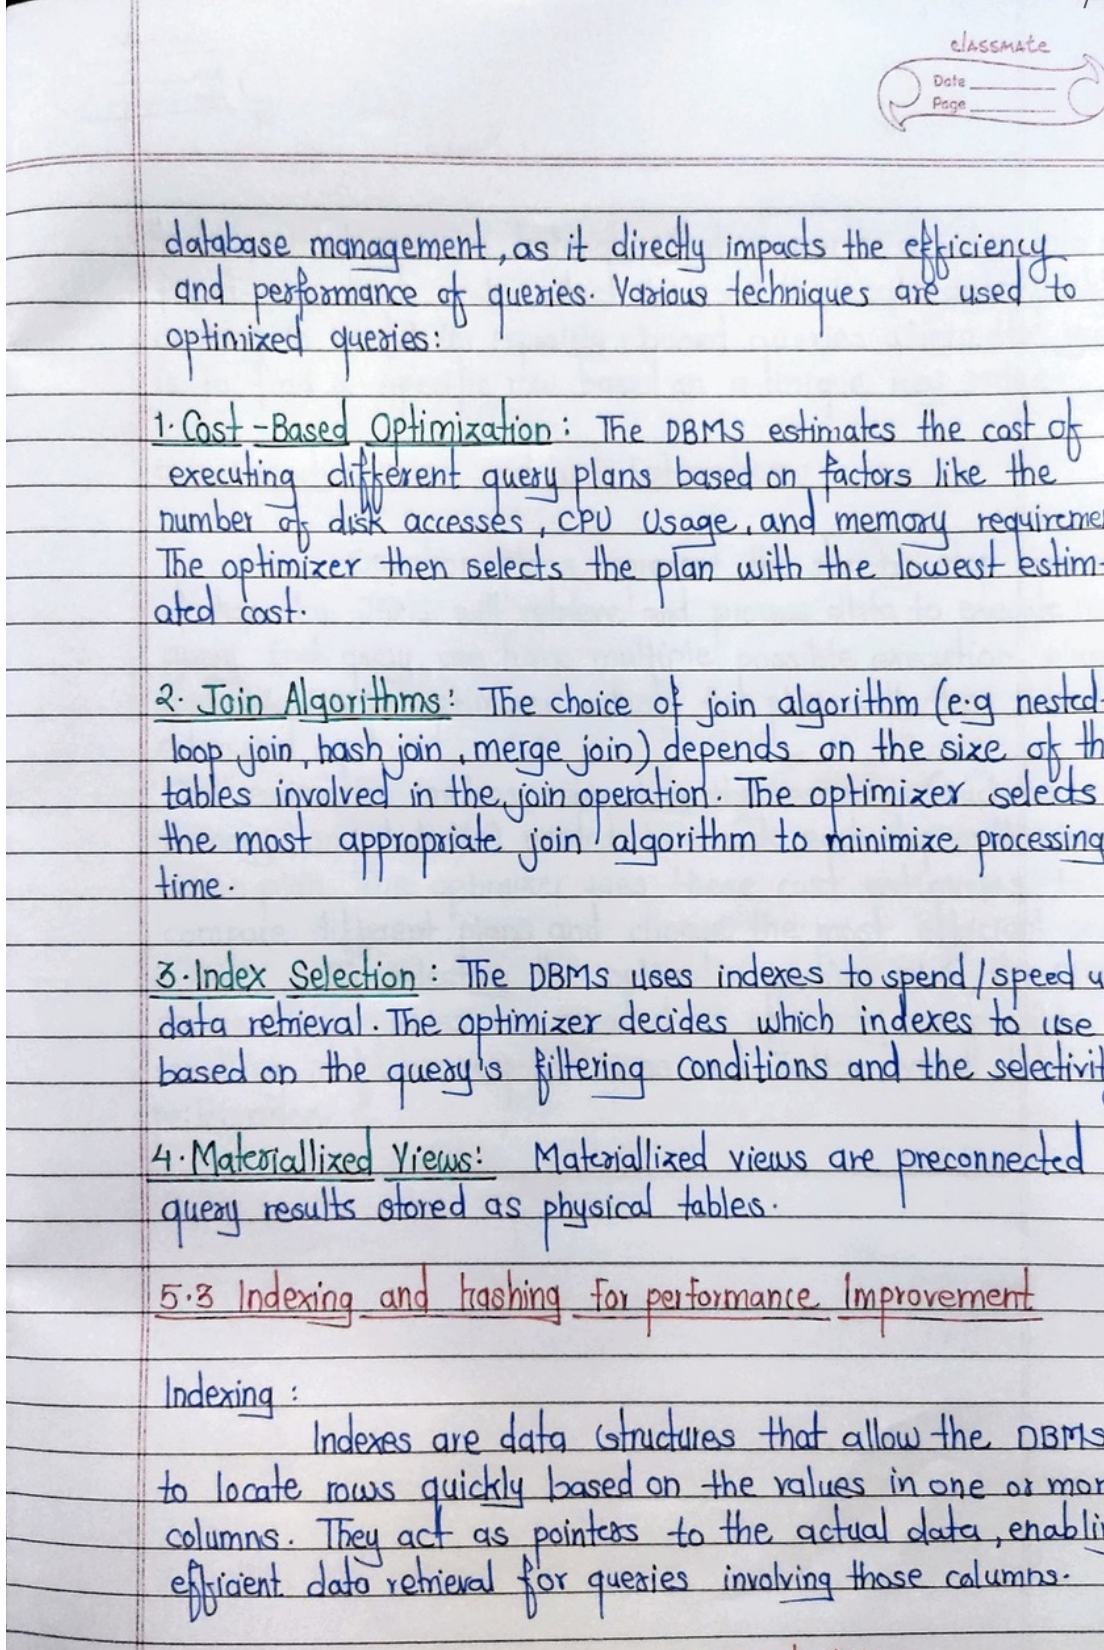 classmate
Date
Page
database management, as it directly impacts the efficiency
and performance of queries. Various techniques are used to
optimized queries:
1. Cost-Based Optimization: The DBMS estimates the cost of
executing different query plans based on factors like the
number of disk accesses, CPU Usage, and memory requireme
The optimizer then selects the plan with the lowest estim-
ated cost.
2. Join Algorithms: The choice of join algorithm (e.g nested-
loop join, hash join, merge join) depends on the size of th
tables involved in the join operation. The optimizer selects
the most appropriate join algorithm to minimize processing
time.
3. Index Selection: The DBMS uses indexes to spend/speed u
data retrieval. The optimizer decides which indexes to use
based on the query's filtering conditions and the selectivit
4. Materiallized Views: Materiallized views are preconnected
query results stored as physical tables.
5.3 Indexing and hashing for performance Improvement
Indexing:
Indexes are data structures that allow the DBMS
to locate rows quickly based on the values in one or mor
columns. They act as pointers to the actual data, enabli
efficient data retrieval for queries involving those columns.